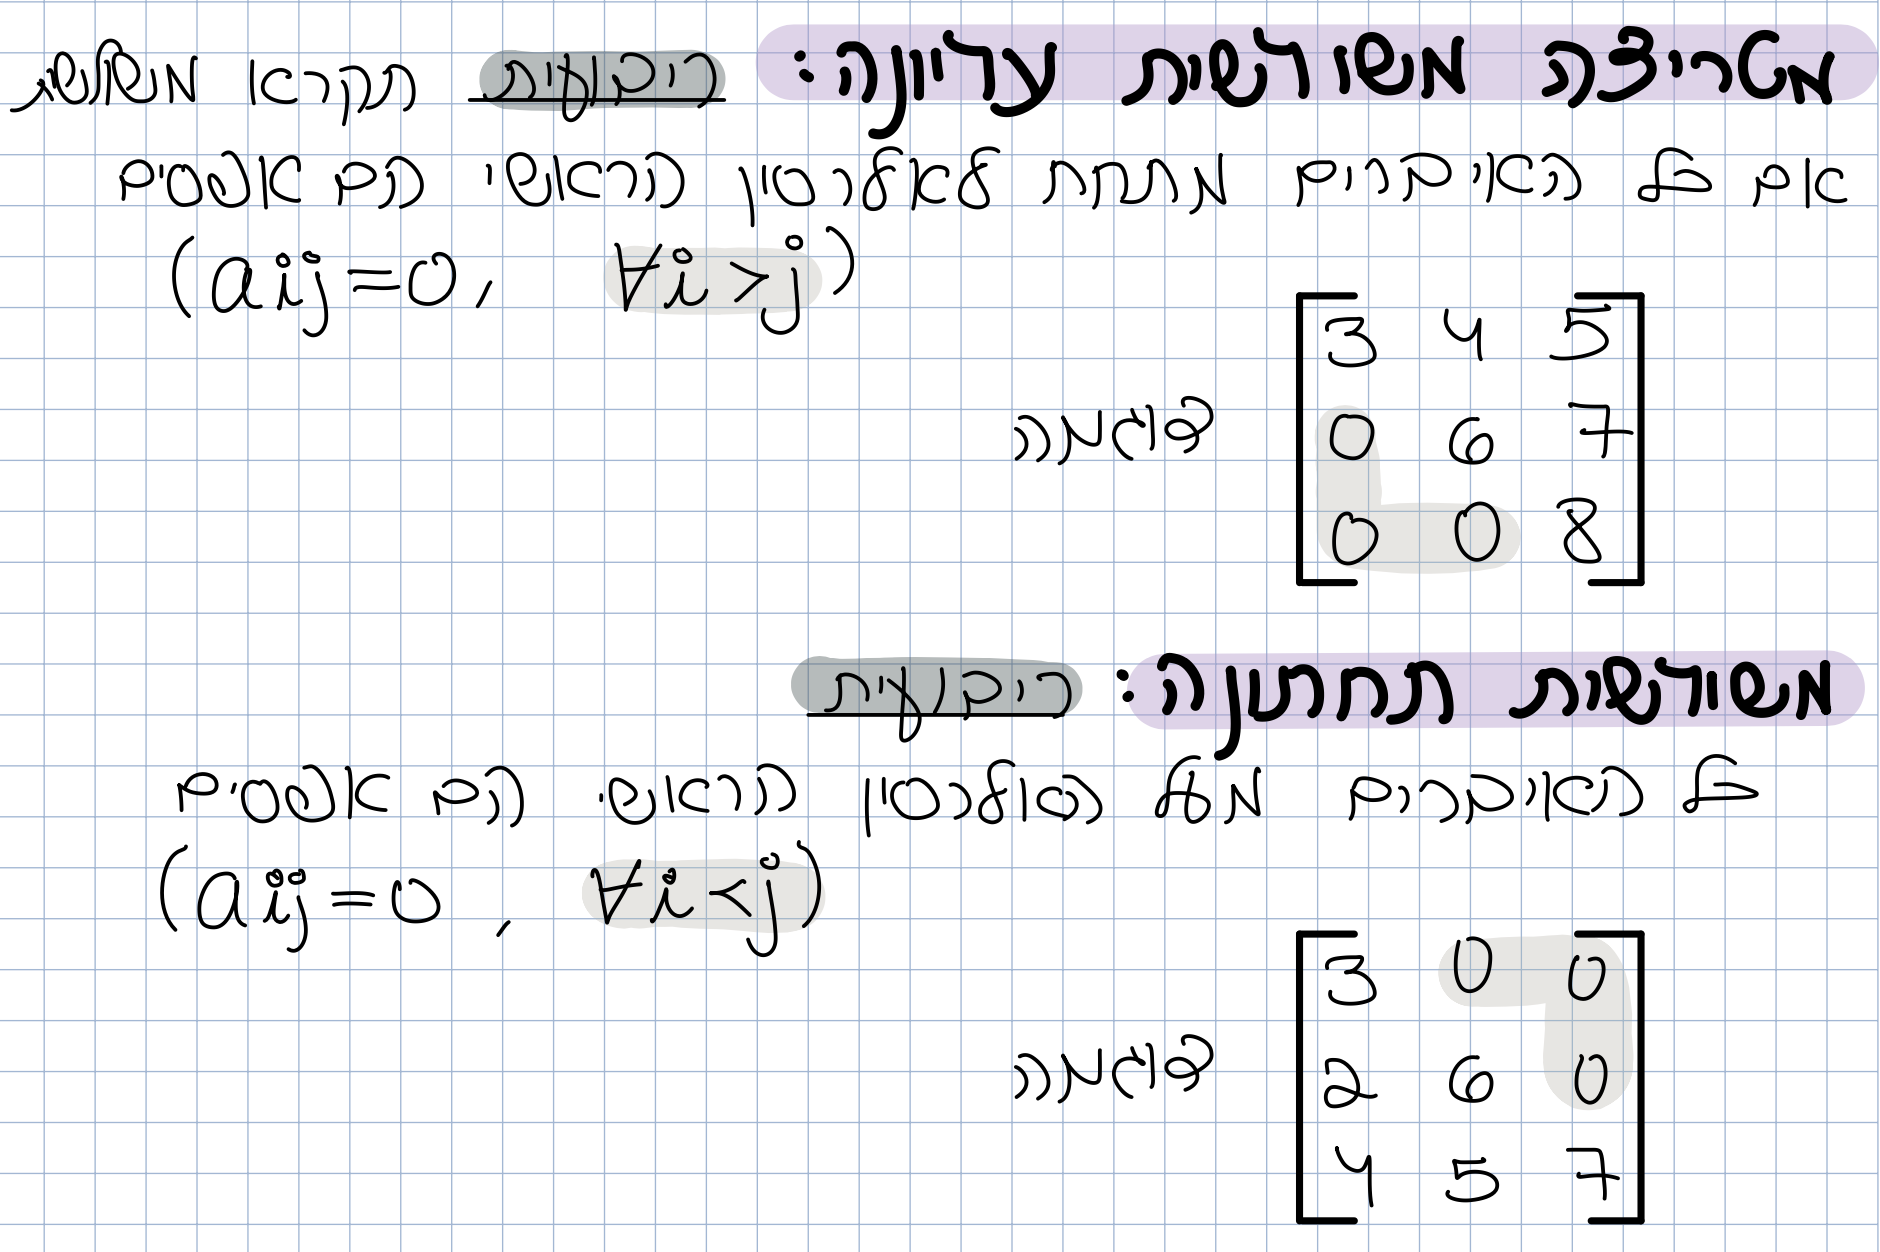 מטריצה משולשית עליונה: ריבועית תקרא משולשית
אם כל האיברים מתחת לאלכסון הראשי הם אפסים
(aij=0, ∀i>j)
דוגמה
3 4 5
0 6 7
0 0 8
משולשית תחתונה: ריבועית
כל האיברים מעל האלכסון הראשי הם אפסים
(aij=0, ∀i<j)
דוגמה
3 0 0
2 6 0
4 5 7